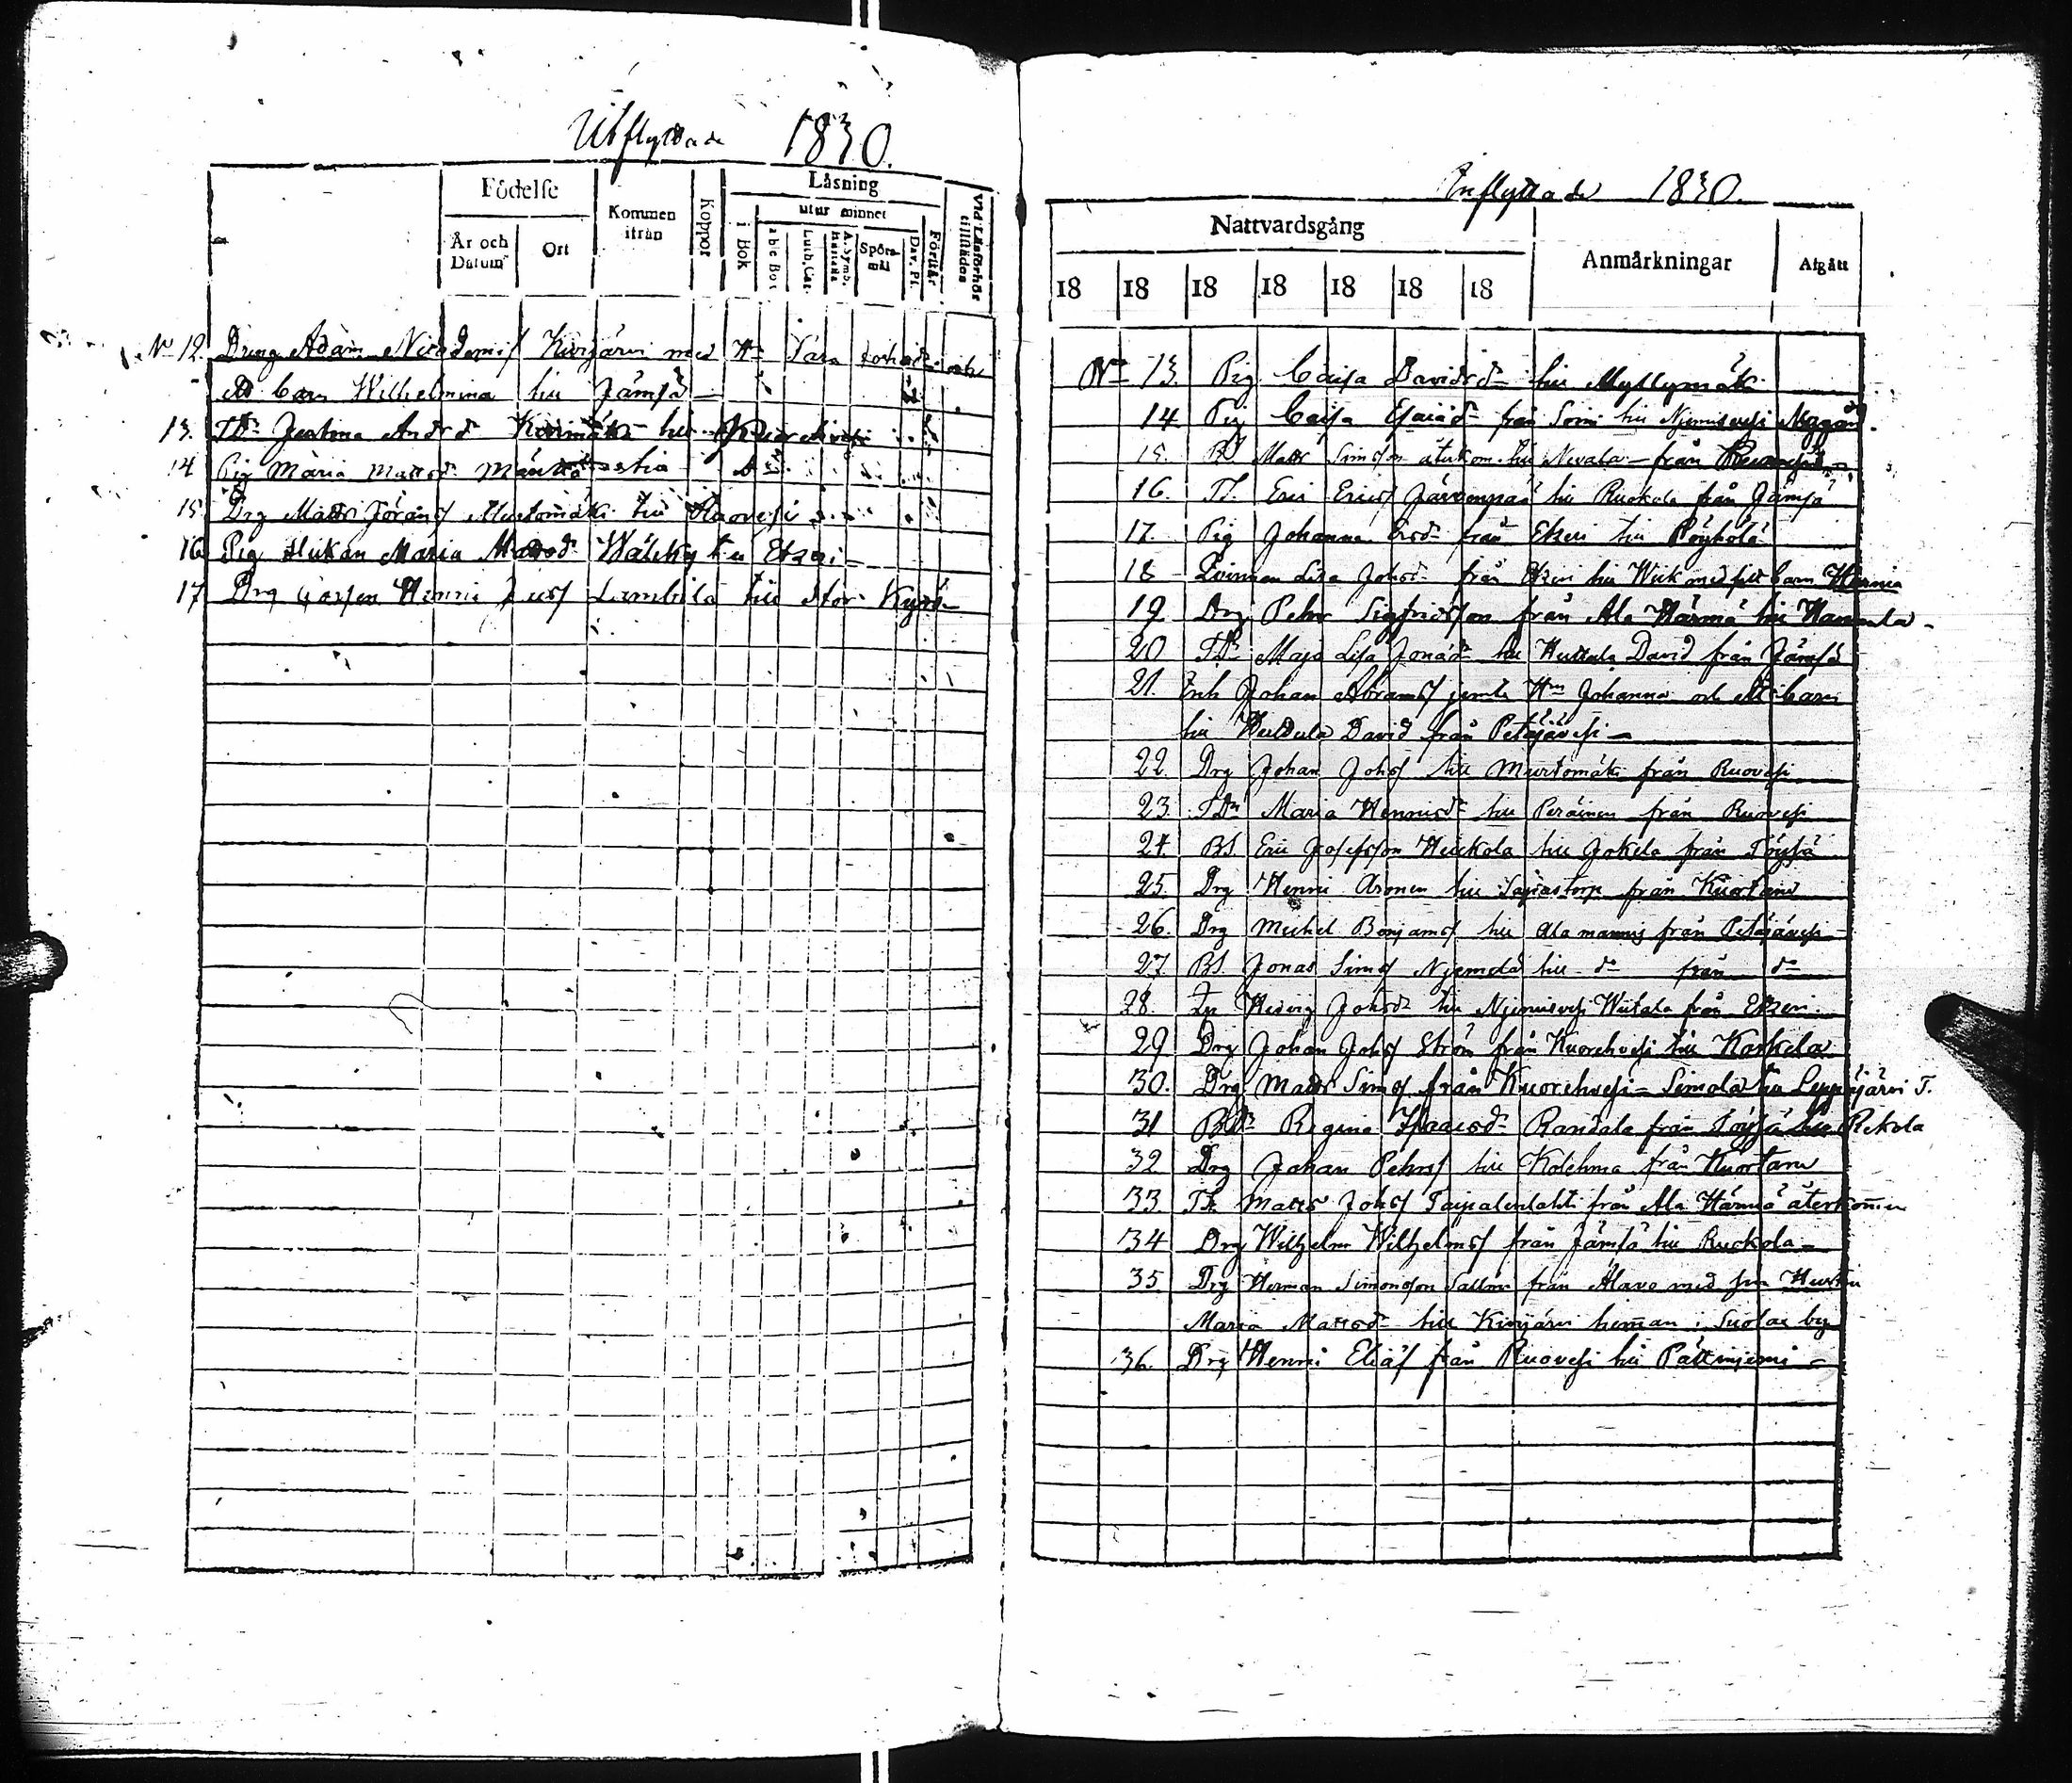 Utflyttade 1830.
Födelse
Kommen ifrån
Koppor
Läsning
Vid Läsförhör tillstädes
År och Datum
Ort
i Bok
utur minnet
Luth. Cat.
Spörsmål
Dav. Ps.
Förstår
No 12. Dreng Adam Nicodemiss Kivijärvi med Hu Sara och
barn Wilhelmina till Jämsä
13. TDr Justina Andsdr till Kuorehvesi
14 Pig Maria Mattsdr
15 Drg Matts Göranss Murtomäki till Ruovesi
16 Pig Maria Mattsdr till Etzeri
17 Drg Henric till Stor Kyrö
Inflyttade 1830.
Nattvardsgång
Anmärkningar
Afgått
18 18 18 18 18 18 18
No 13. Pig Caisa Davidsdr till Myllymäki
14 Pig Caisa Esaiædr från till Njemisvesi
15. Matts Simsson återkom. till Nevala från
16. TS. Eric Ericss till Ruokola från Jämsä
17. Pig Johanna Ersdr från Etzeri till Pöyhölä
18 Qvinnan Lisa Johsdr från Etzeri till Wiik med sitt barn
19. Drg Pehr Sigfridsson från Ala Härmä till
20 TDr Maja Lisa Jonædr till Huttula David från Jämsä
21. Inh Johan Abramss jemte Hu Johanna och barn
till Huttula David från Petäjävesi
22. Drg Johan Johss till Murtomäki från Ruovesi
23. TDr Maria Henricsdr till Peräinen från Ruovesi
24. BS. Eric Josefsson Heickola till Jokela från Töysä
25. Drg Henric Aronen till från Kuortane
26. Drg Michel Benjamss till Alamannis från Petäjävesi
27. BS. Jonas Simss till do från do
28. Hedvig Johsdr till Njemisvesi Wiitala från Etzeri
29 Drg Johan Johss Ström från Kuorehvesi till Koskela
30. Drg Matts Simss från Kuorehvesi Simola till Leppäjärvi T.
31 BDr Regina Isacsdr Rantala från Töysä till Rekola
32 Drg Johan Pehrss till Kolehma från Kuortane
33 TS. Matts Johss Taipalenlahti från Ala Härmä återkommen
34 Drg Wilhelm Wilhelmss från Jämsä till Ruokola
35. Drg Herman Simonsson från Alavo med sin Hustru
Maria Mattsdr till Kivijärvi heman i by
36. Drg Henric Eliæs från Ruovesi till Pättinjemi